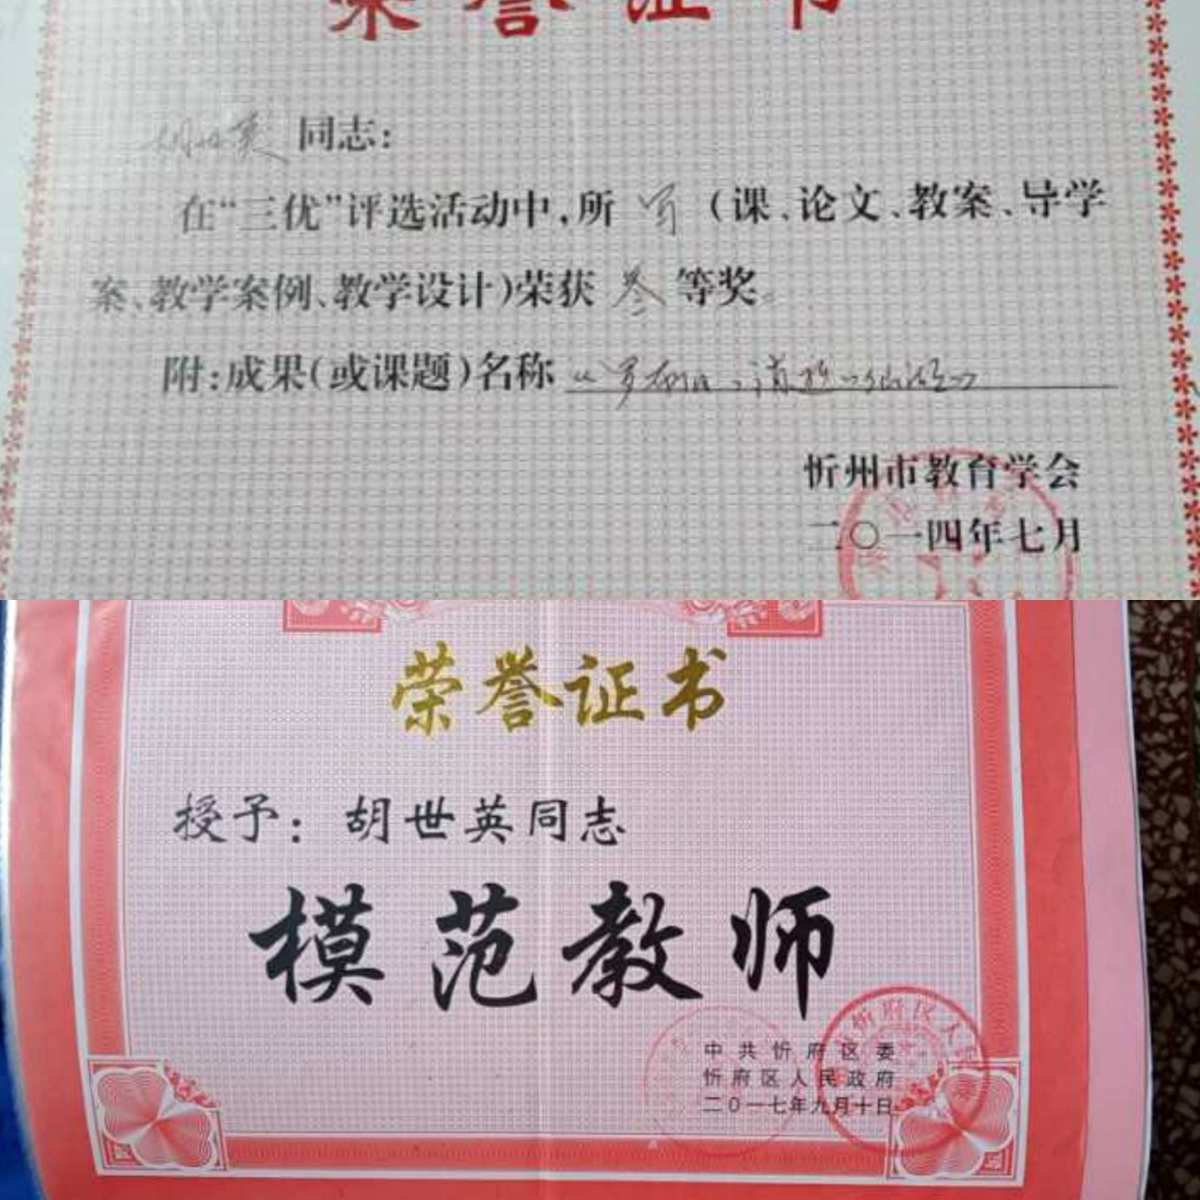 荣誉证书
同志：
在“三优”评选活动中，所写（课、论文、教案、导学
案、教学案例、教学设计）荣获叁等奖。
附：成果（或课题）名称
忻州市教育学会
二〇一四年七月
荣誉证书
授予：胡世英同志
模范教师
中共忻府区委
忻府区人民政府
二〇一七年九月十日